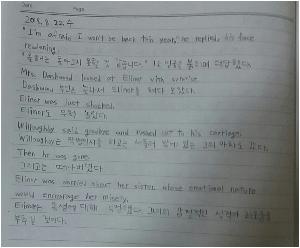 Date Page
2018. 8. 22. 수
"I'm afraid I won't be back this year," he replied, his face
reddening.
"올해에는 돌아오지 못할 것 같습니다." 그는 얼굴을 붉히며 대답했다.
Mrs. Dashwood looked at Elinor with surprise.
Dashwood 부인은 놀라서 Elinor를 쳐다 보았다.
Elinor was just shocked.
Elinor도 무척 놀랐다.
Willoughby said goodbye and rushed out to his carriage.
Willoughby는 작별인사를 하고는 서둘러 밖에 있는 그의 마차로 갔다.
Then he was gone.
그리고는 떠나버렸다.
Elinor was worried about her sister, whose emotional nature
would encourage her misery.
Elinor는 동생에 대해 걱정했다. 그녀의 감정적인 성격이 괴로움을
부추길 것이다.